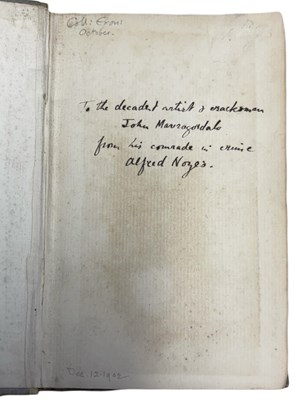 October.
To the decadent artist & cracksman
John Mavrogordato
from his comrade in crime
Alfred Noyes.
Dec. 13. 1902